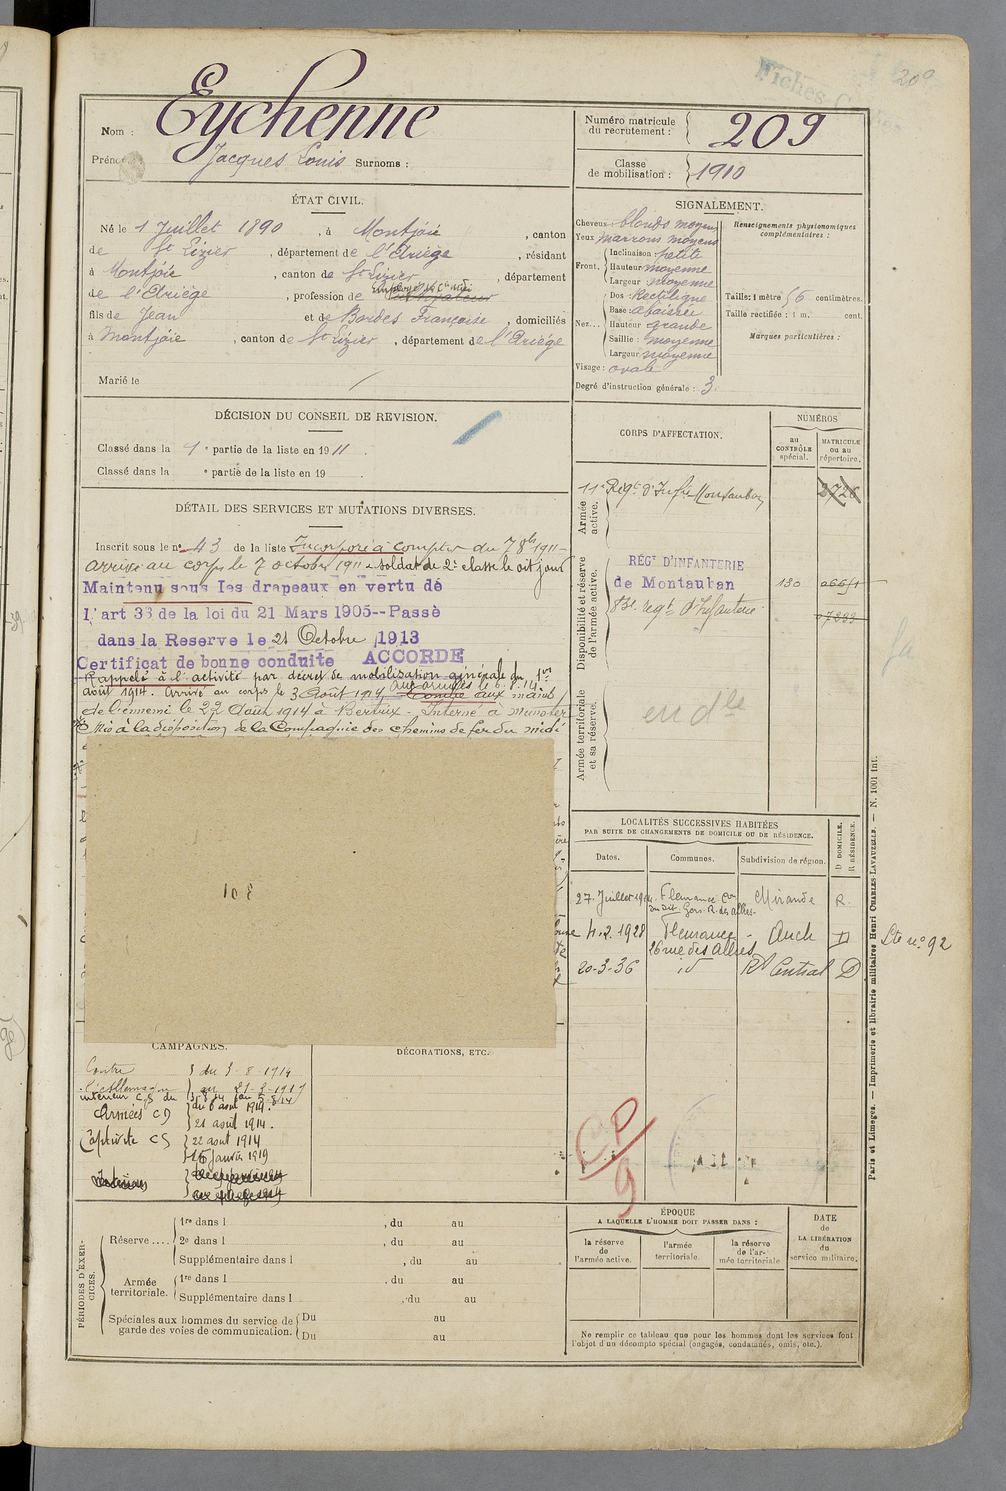 209
Fiches
Nom : Eychenne
Jacques Louis Surnoms :
Numéro matricule
du recrutement : 209
Classe
de mobilisation : 1910
ÉTAT CIVIL.
Né le 1 Juillet 1890, à Montjoie, canton
de St Lizier, département de l'Ariège, résidant
à Montjoie, canton de St Lizier, département
de l'Ariège, profession de
fils de Jean et de Bordes Françoise, domiciliés
à Montjoie, canton de St Lizier, département de l'Ariége
Marié le
SIGNALEMENT.
Cheveux blonds moyens
Yeux marrons moyens
Front. Inclinaison : petite
Hauteur moyenne
Largeur moyenne
Nez... Dos : Rectiligne
Base : abaissée
Hauteur grande
Saillie : moyenne
Largeur moyenne
Visage : ovale
Degré d'instruction générale : 3
Renseignements physionomiques
complémentaires :
Taille : 1 mètre 56 centimètres.
Taille rectifiée : 1 m. cent.
Marques particulières :
DÉCISION DU CONSEIL DE REVISION.
Classé dans la 1e partie de la liste en 1911.
Classé dans la e partie de la liste en 19
DÉTAIL DES SERVICES ET MUTATIONS DIVERSES.
Inscrit sous le no 43 de la liste Incorporé à compter du 7 8bre 1911 -
arrivé au corps le 7 octobre 1911 & soldat de 2e classe le dit jour
Maintenu sous les drapeaux en vertu dé
l'art 33 de la loi du 21 Mars 1905--Passè
dans la Reserve le 21 Octobre 1913
Certificat de bonne conduite ACCORDE
Rappelé à l'activité par décret de mobilisation générale du 1er
aux armées le 6.8.14
août 1914. Arrivé au corps le 3 Août 1914. Tombé aux mains
de l'ennemi le 22 Août 1914 à Bertrix - Interné à Munster
Mis à la disposition de la Compagnie des chemins de fer du midi
108
CORPS D'AFFECTATION.
NUMÉROS
au
CONTRÔLE
spécial.
MATRICULE
ou au
répertoire.
Armée
active.
11e Régt d'Infie Montauban 2726
Disponibilité et réserve
de l'armée active.
RÉGt D'INFANTERIE
de Montauban 130
Armée territoriale
et sa réserve.
LOCALITÉS SUCCESSIVES HABITÉES
PAR SUITE DE CHANGEMENTS DE DOMICILE OU DE RÉSIDENCE.
Dates. Communes. Subdivision de région. D DOMICILE. R RÉSIDENCE.
27 Juillet 1914 Fleurance Mirande R.
4.2.1928 Fleurance - Auch D
26 rue des Allées
20-3-36 id Rt Central D
Lte no 92
CAMPAGNES.
DÉCORATIONS, ETC.
Contre du 3-8-1914
l'Allemagne
intérieur CS du
Armées CD du 6 aout 1914.
21 août 1914.
Captivité CS 22 aout 1914
Janvier 1919
CP
9
PÉRIODES D'EXER-
CICES.
Réserve .... 1re dans l , du au
2e dans l , du au
Supplémentaire dans l , du au
Armée
territoriale. 1re dans l , du au
Supplémentaire dans l , du au
Spéciales aux hommes du service de
garde des voies de communication. Du au
Du au
ÉPOQUE
A LAQUELLE L'HOMME DOIT PASSER DANS :
la réserve
de
l'armée active.
l'armée
territoriale.
la réserve
de l'ar-
mée territoriale
DATE
de
LA LIBÉRATION
du
service militaire.
Ne remplir ce tableau que pour les hommes dont les services font
l'objet d'un décompte spécial (engagés, condamnés, omis, etc.).
Paris et Limoges. — Imprimerie et librairie militaires Henri CHARLES-LAVAUZELLE. — N. 1001 int.